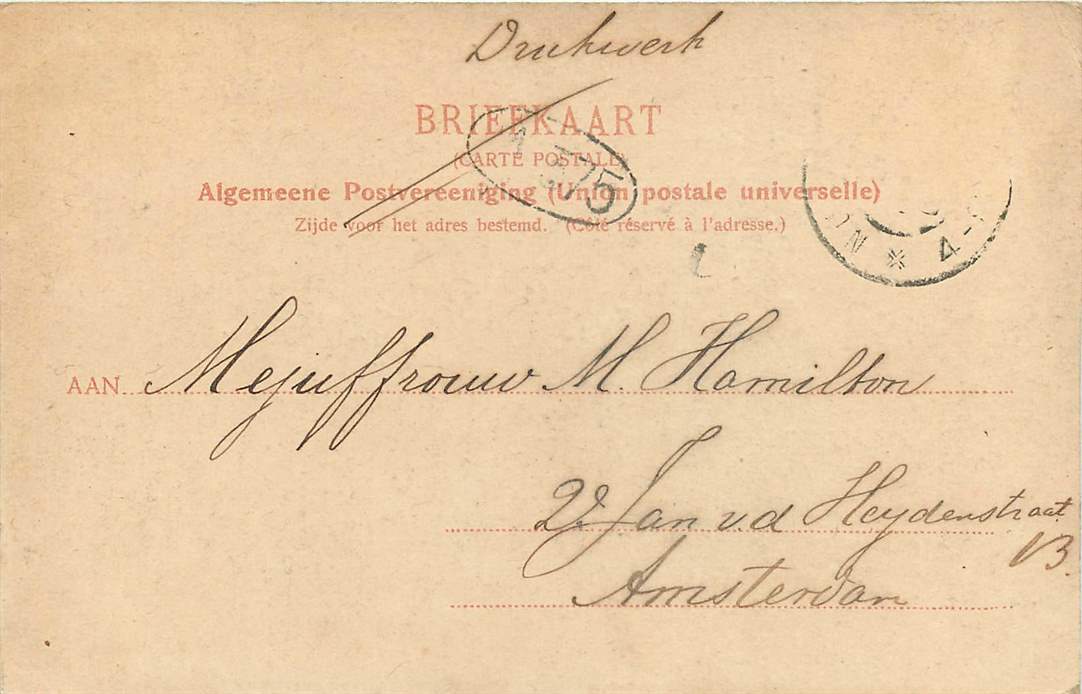 Drukwerk
BRIEFKAART
(CARTE POSTALE)
Algemeene Postvereeniging (Union postale universelle)
Zijde voor het adres bestemd. (Côté réservé à l'adresse.)
375
4-
AAN Mejuffrouw M. Hamilton
Jan v.d Heydenstraat
13.
Amsterdam